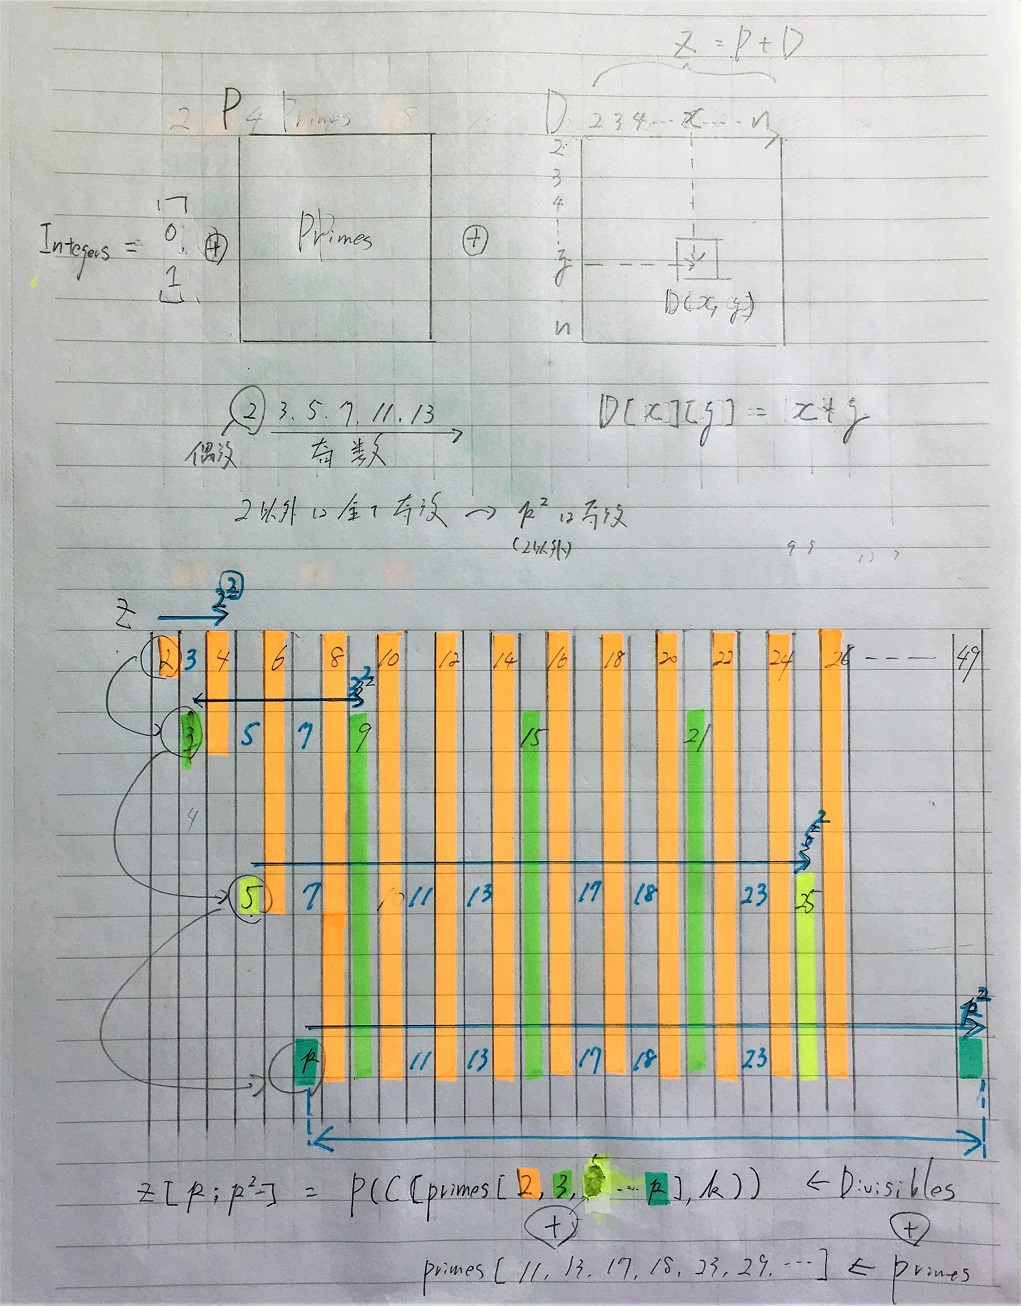 Z = P + D
P
D 2 3 4 ... x ... n
2
3
4
y
n
Integers = [0, 1] ⊕ Primes ⊕
D(x, y)
2 3. 5. 7. 11. 13
偶数 奇数
D[x][y] = x * y
2以外は全て奇数 → p² は奇数
(2以外)
Z 2²
2 3 4 6 8 10 12 14 16 18 20 22 24 26 ---- 49
3²
3 5 7 9 15 21
4
5²
5 7 11 13 17 18 23 25
p²
p 11 13 17 18 23
Z[p : p²-] = P(C[primes[2, 3, 5 ... p], k)) ← Divisibles
⊕ ⊕
primes[11, 13, 17, 18, 23, 29, ...] ← primes